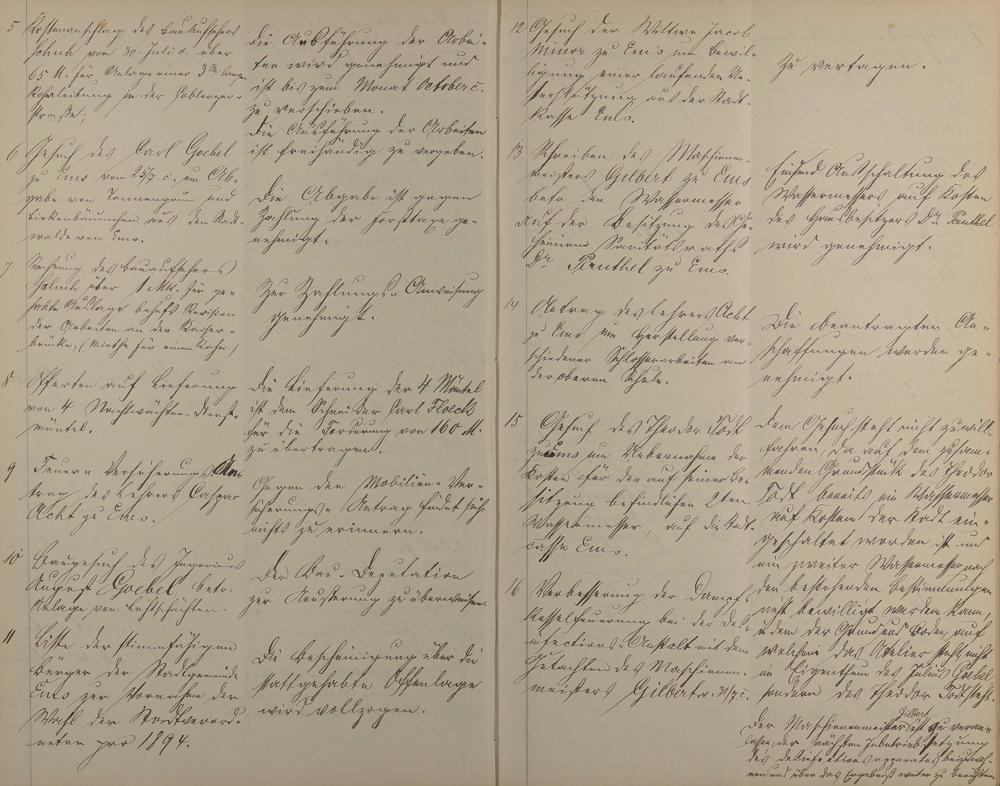 5 Kostenanschlag des Bauaufsehers
Hohnk vom 30. Juli c. über
65 M. für Anlage einer 3 m langen
Rohrleitung in der Coblenzer-
straße;
Die Ausführung der Arbei-
ten wird genehmigt und
ist bis zum Monat October c.
zu verschieben.
Die Ausführung der Arbeiten
ist freihändig zu vergeben.
6 Gesuch des Carl Goebel
zu Ems vom 25/7. c. um Ab-
gabe von Tannengrün und
Birkenbäumchen aus dem Stadt-
walde von Ems.
Die Abgabe ist gegen
Zahlung der Forsttaxe ge-
nehmigt.
7 Rechnung des Bauaufsehers
über 1 Mk. für ge-
habte Auslage behufs Revision
der Arbeiten an der Kaiser-
brücke, (Miethe für einen Kahn.)
Zur Zahlungs-Anweisung
genehmigt.
8 Offerten auf Lieferung
von 4 Nachtwächter-Dienst-
mäntel.
Die Lieferung der 4 Mäntel
ist dem Schneider Carl Floeck
für die Forderung von 160 M.
zu übertragen.
9 Feuer-Versicherungs-An-
trag des Lehrers Caspar
Acht zu Ems.
Gegen den Mobiliar-Ver-
sicherungs-Antrag findet sich
nichts zu erinnern.
10 Baugesuch des Ingenieurs
August Goebel, betr.
Anlage von Luftschächten.
Der Bau-Deputation
zur Aeußerung zu überweisen.
11 Liste der stimmfähigen
Bürger der Stadtgemeinde
Ems zur Vornahme der
Wahl der Stadtverord-
neten pro 1894.
Die Bescheinigung über die
stattgehabte Offenlage
wird vollzogen.
12 Gesuch der Wittwe Jacob
Minor zu Ems um Bewil-
ligung einer laufenden Un-
terstützung aus der Stadt-
kasse Ems.
Zu vertagen.
13 Schreiben des Maschinen-
meisters Gilbert zu Ems
betr. den Wassermesser
auf der Besitzung des Ge-
heimen Sanitätsraths
Dr. Panthel zu Ems.
Ausschaltung des
Wassermessers auf Kosten
des Hausbesitzers Dr. Panthel
wird genehmigt.
14 Antrag des Lehrers Acht
zu Ems um Herstellung ver-
schiedener Schlosserarbeiten an
der oberen Schule.
Die beantragten An-
schaffungen werden ge-
nehmigt.
15 Gesuch des Theodor Todt
zu Ems um Uebernahme der
Kosten für den auf seiner Be-
sitzung befindlichen 2ten
Wassermesser auf die Stadt-
casse Ems.
Dem Gesuch steht nicht zu will-
fahren, da auf dem zusam-
menden Grundstück des Theodor
Todt bereits ein Wassermesser
auf Kosten der Stadt ein-
geschaltet worden ist und
ein zweiter Wassermesser nach
den bestehenden Bestimmungen
nicht bewilligt werden kann,
indem der Grund und Boden, auf
welchem das Atelier steht, nicht
im Eigenthum des Julius Goebel
sondern des Theodor Todt steht.
16 Verbesserung der Dampf-
kesselfeuerung bei der Des-
infections-Anstalt mit dem
Gutachten des Maschinen-
meisters Gilbert v. 31/7. c.
Der Maschinenmeister Gilbert ist zu veran-
lassen, der nächsten Inbetriebsetzung
des Desinfectionsapparates beizuwoh-
nen und über das Ergebniß weiter zu berichten.